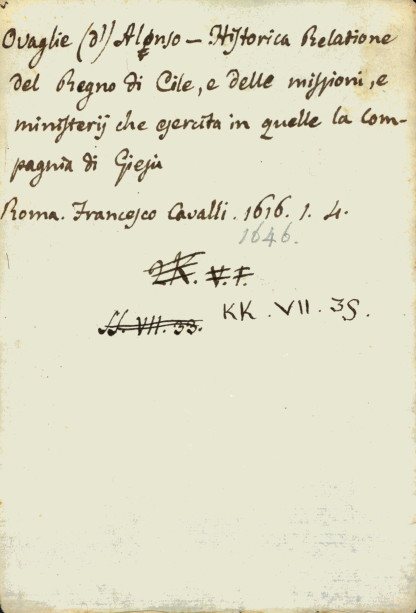 Ovaglie (d') Alonso - Historica Relatione
del Regno di Cile, e delle missioni, e
ministerij che esercita in quelle la Com-
pagnia di Giesù
Roma. Francesco Cavalli. 1616. 1. 4.
1646.
V. F.
SS. VII. 33.
KK. VII. 35.